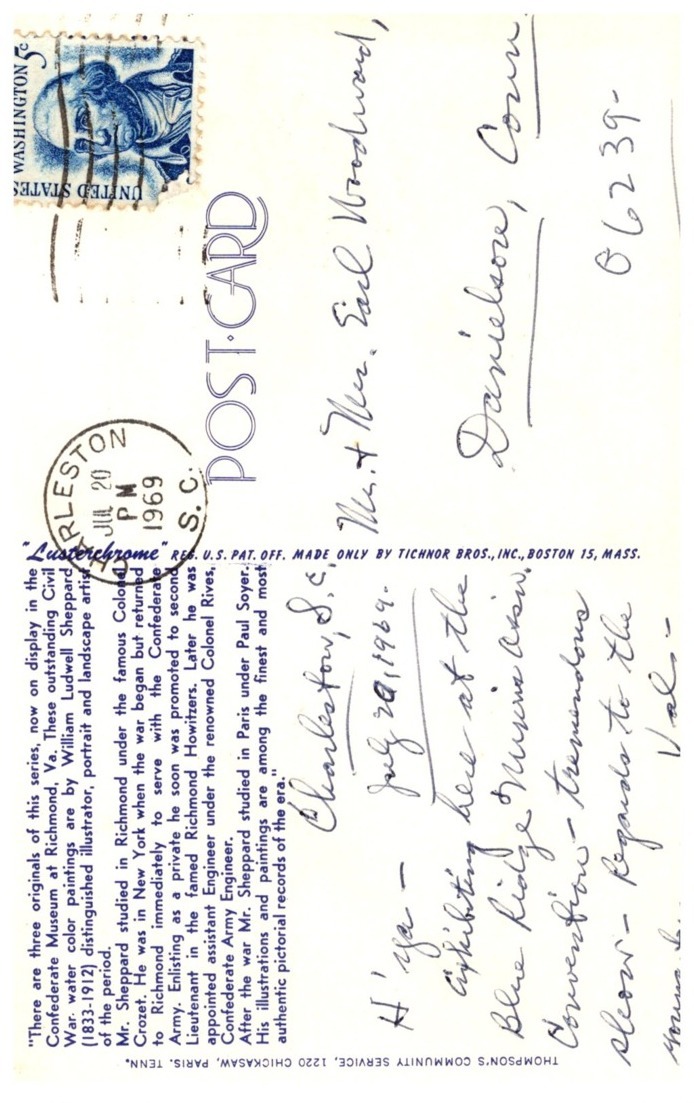 "There are three originals of this series, now on display in the
Confederate Museum at Richmond, Va. These outstanding Civil
War water color paintings are by William Ludwell Sheppard
(1833-1912) distinguished illustrator, portrait and landscape artist
of the period.
Mr. Sheppard studied in Richmond under the famous Colonel
Crozet. He was in New York when the war began but returned
to Richmond immediately to serve with the Confederate
Army. Enlisting as a private he soon was promoted to second
Lieutenant in the famed Richmond Howitzers. Later he was
appointed assistant Engineer under the renowned Colonel Rives,
Confederate Army Engineer.
After the war Mr. Sheppard studied in Paris under Paul Soyer.
His illustrations and paintings are among the finest and most
authentic pictorial records of the era."
Charleston, S.C.
July 20, 1969-
H'ya -
Exhibiting here at the
Blue Ridge Mineral Assn.
Convention - tremendous
show - Regards to the
Val -
THOMPSON'S COMMUNITY SERVICE, 1220 CHICKASAW, PARIS. TENN.
"Lusterchrome" REG. U.S. PAT. OFF. MADE ONLY BY TICHNOR BROS., INC., BOSTON 15, MASS.
CHARLESTON
JUL 20
PM
1969
S. C.
WASHINGTON 5c
UNITED STATES
POST·CARD
Mr. + Mrs. Earl Woodward,
Danielson, Conn
06239-